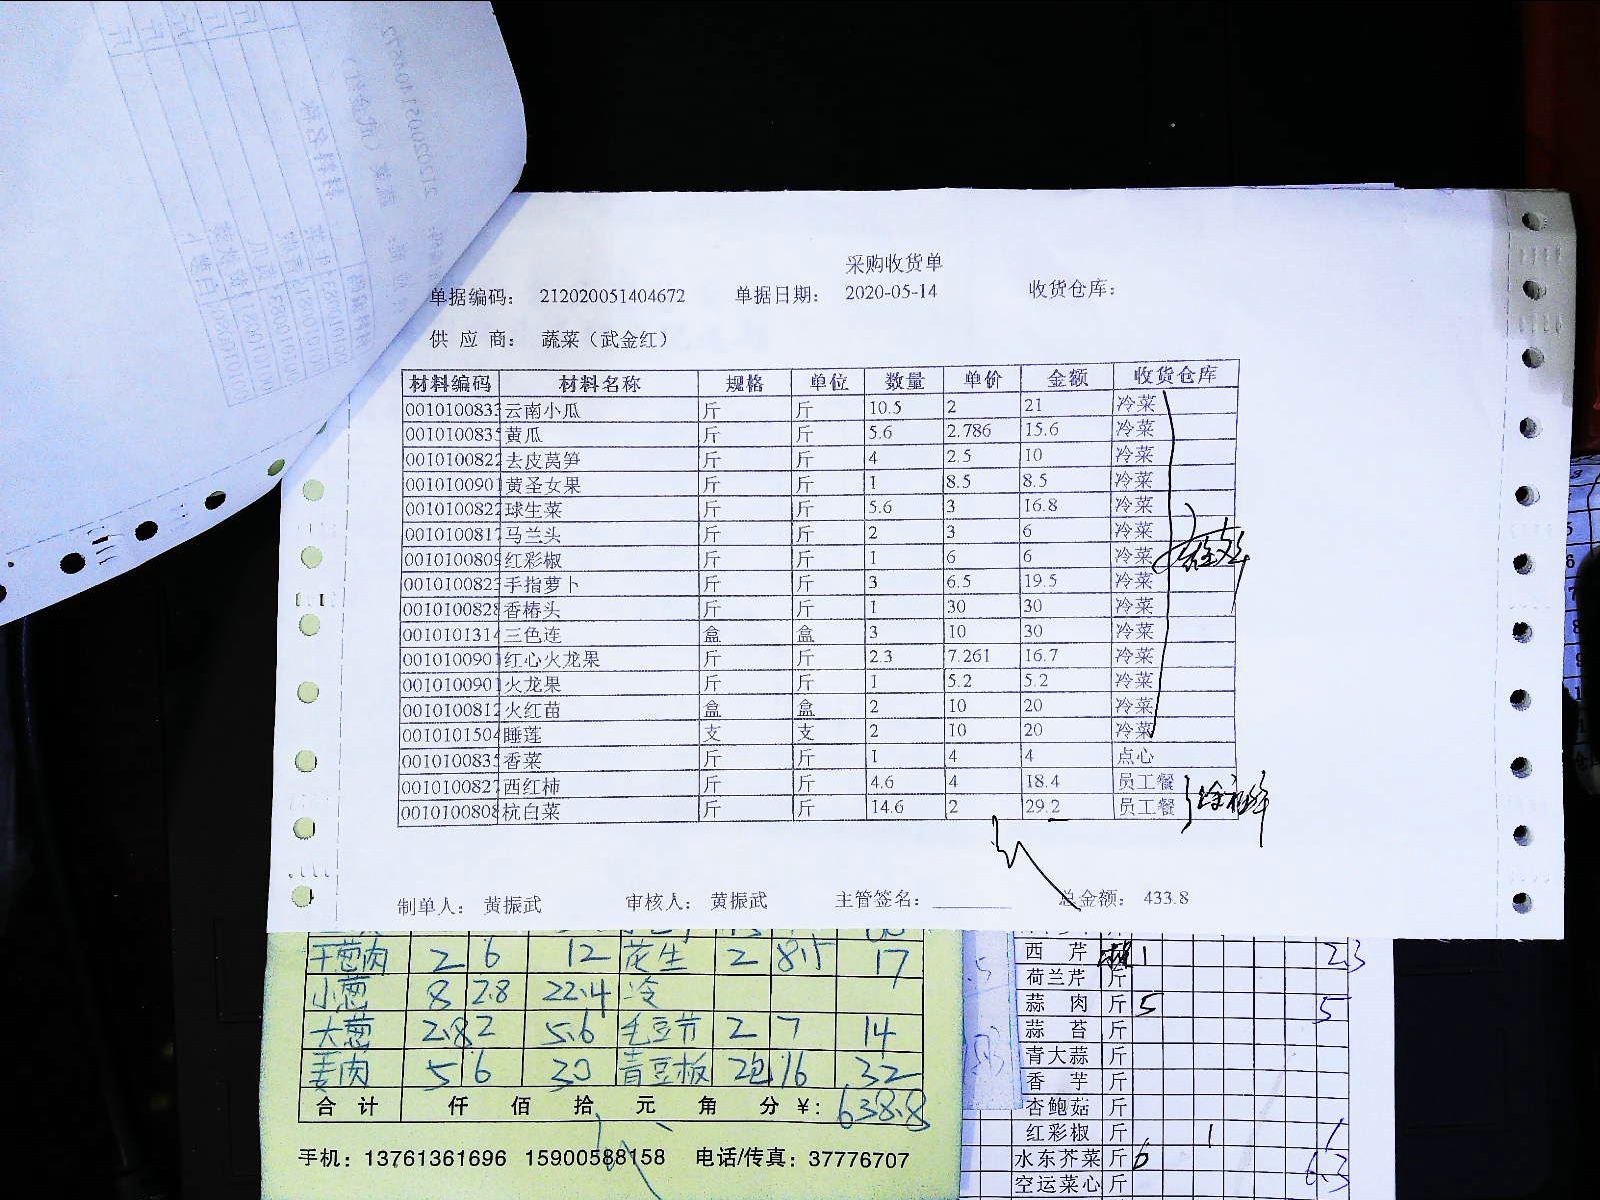 采购收货单
单据编码： 212020051404672 单据日期： 2020-05-14 收货仓库：
供 应 商： 蔬菜（武金红）
材料编码 材料名称 规格 单位 数量 单价 金额 收货仓库
0010100833 云南小瓜 斤 斤 10.5 2 21 冷菜
0010100835 黄瓜 斤 斤 5.6 2.786 15.6 冷菜
0010100822 去皮莴笋 斤 斤 4 2.5 10 冷菜
0010100901 黄圣女果 斤 斤 1 8.5 8.5 冷菜
0010100822 球生菜 斤 斤 5.6 3 16.8 冷菜
0010100817 马兰头 斤 斤 2 3 6 冷菜
0010100809 红彩椒 斤 斤 1 6 6 冷菜
0010100823 手指萝卜 斤 斤 3 6.5 19.5 冷菜
0010100828 香椿头 斤 斤 1 30 30 冷菜
0010101314 三色连 盒 盒 3 10 30 冷菜
0010100901 红心火龙果 斤 斤 2.3 7.261 16.7 冷菜
0010100901 火龙果 斤 斤 1 5.2 5.2 冷菜
0010100812 火红苗 盒 盒 2 10 20 冷菜
0010101504 睡莲 支 支 2 10 20 冷菜
0010100835 香菜 斤 斤 1 4 4 点心
0010100827 西红柿 斤 斤 4.6 4 18.4 员工餐
0010100808 杭白菜 斤 斤 14.6 2 29.2 员工餐
制单人： 黄振武 审核人： 黄振武 主管签名： 总金额： 433.8
干葱肉 2 6 12 花生 2 8.5 17
小葱 8 2.8 22.4 冷
大葱 2.8 2 5.6 毛豆节 2 7 14
姜肉 5 6 30 青豆板 2包 16 32
合 计 仟 佰 拾 元 角 分 ¥: 638.8
手机：13761361696 15900588158 电话/传真：37776707
西 芹 1 2.3
荷兰芹 斤
蒜 肉 斤 5 5
蒜 苔 斤
青大蒜 斤
香 芋 斤
杏鲍菇 斤
红彩椒 斤 1 1
水东芥菜 斤 6 6.3
空运菜心 斤